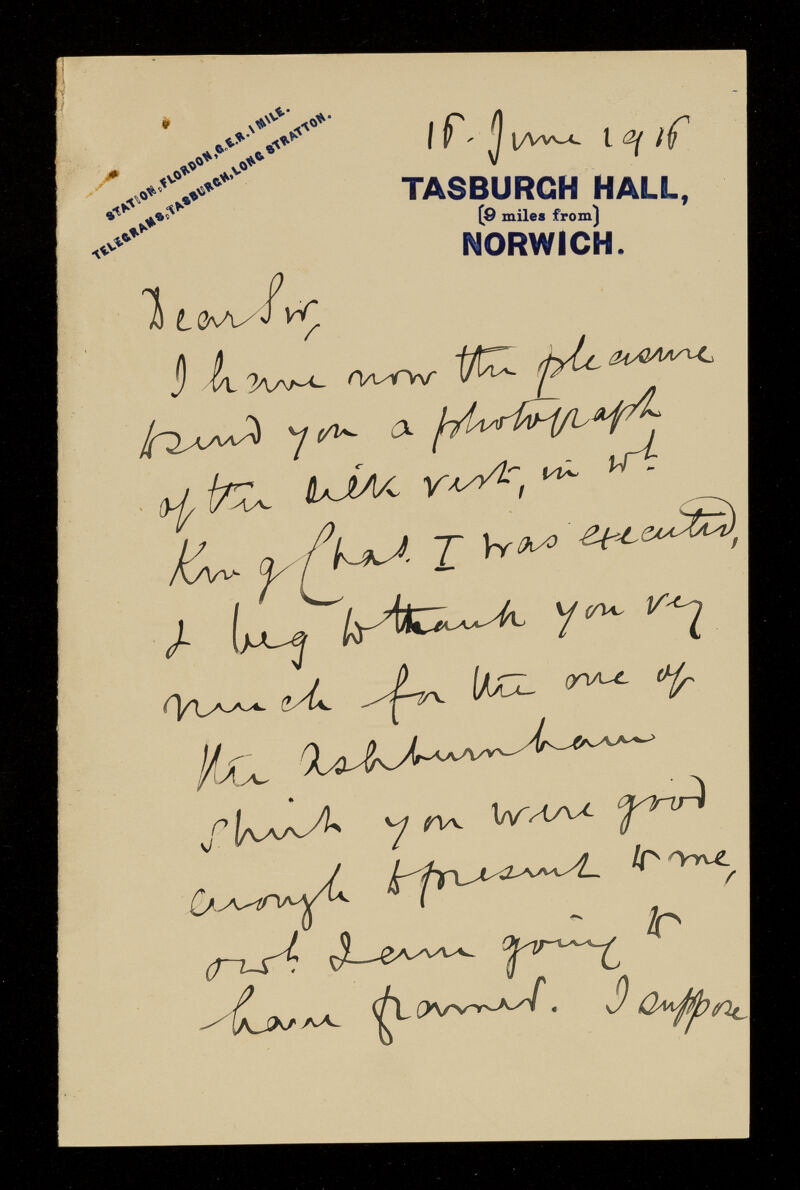 STATION, FLORDON, G.E.R. 1 MILE.
TELEGRAMS, TASBURGH, LONG STRATTON.
16. June 1916
TASBURGH HALL,
(9 miles from)
NORWICH.
Dear Sir,
I have now the pleasure
to send you a photograph
of the silk vest, in wh.
King Chas. I was executed,
& beg to thank you very
much for the one of
the Ashburnham
Shirt you were good
enough to present to me,
& wh. I am going to
have framed. I suppose